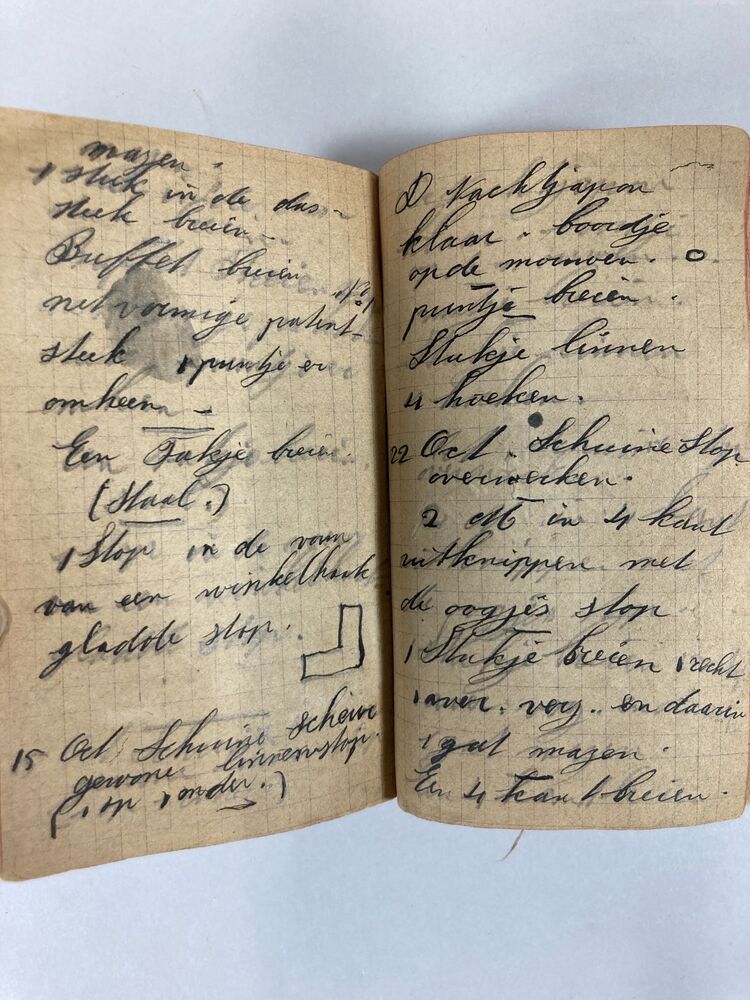 mazen.
1 stuk in de das-
steek breien -
Buffel breien
net vormige patent-
steek 1 puntje er
omheen -
Een Takje breien.
(Staal.)
1 Stop in de vorm
van een winkelhaak
gladde stop.
15 Oct Schuine scheive
gewone linnenstop.
(1 op 1 onder.)
D Nachtjapon
klaar. boordje
op de mouwen.
puntje breien.
Stukje linnen
4 hoeken.
22 Oct. Schuine Stop
overwerken.
2 in 4 kant
uitknippen met
de oogjes stop
1 Stukje breien 1 recht
1 aver. verz. en daarin
1 gat mazen.
Een 4 kant breien.